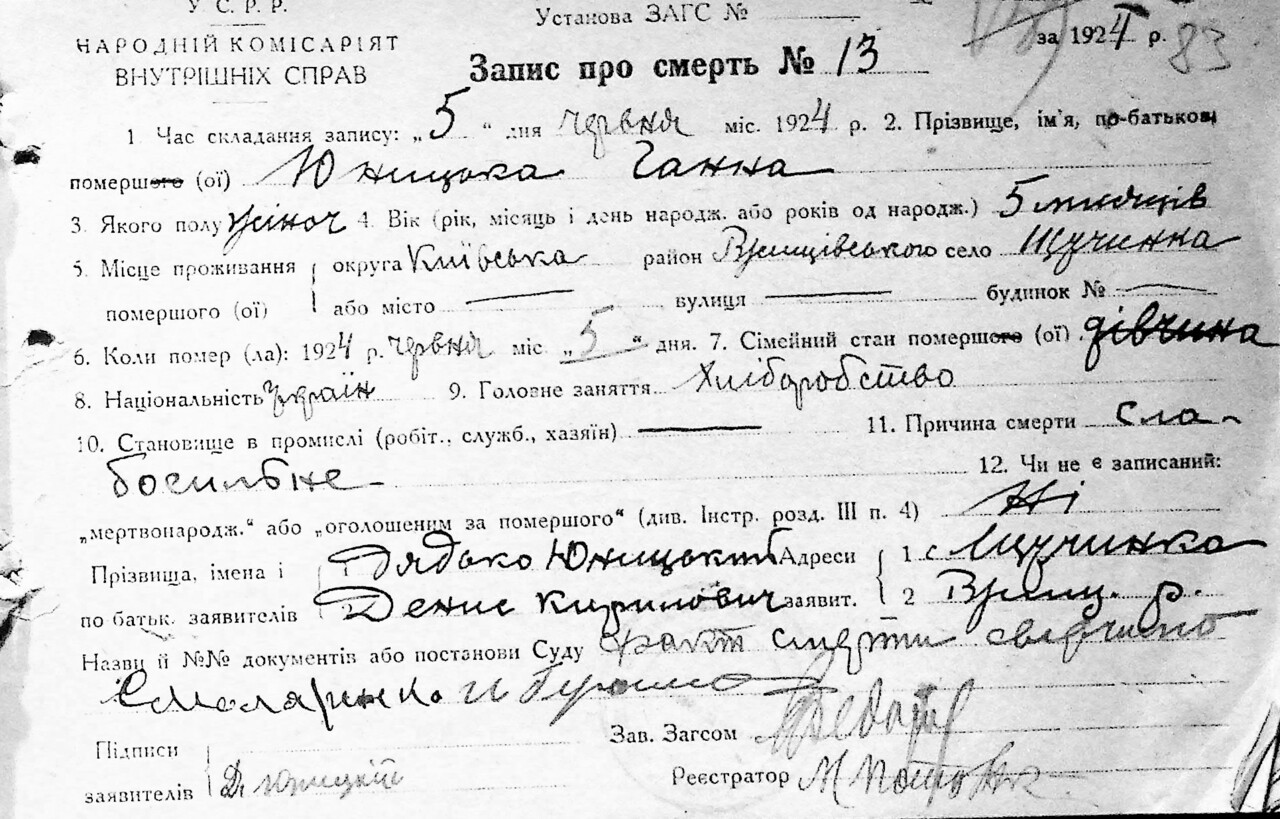 У.С.Р.Р.
НАРОДНІЙ КОМІСАРІЯТ
ВНУТРІШНІХ СПРАВ
Установа ЗАГС №
за 1924 р. 83
Запис про смерть № 13
1. Час складання запису: „5“ дня червня міс. 1924 р. 2. Прізвище, ім'я, по-батькові
помершого (ої) Юницька Ганна
3. Якого полу жіноч 4. Вік (рік, місяць і день народж. або років од народж.) 5 місяців
5. Місце проживання округа Київська район Ржищівського село Щучинка
помершого (ої) або місто — вулиця — будинок № —
6. Коли помер (ла): 1924 р. червня міс. „5“ дня. 7. Сімейний стан помершого (ої) дівчина
8. Національність Україн 9. Головне заняття Хліборобство
10. Становище в промислі (робіт., служб., хазяїн) — 11. Причина смерти сла-
босильне
12. Чи не є записаний:
„мертвонародж.“ або „оголошеним за помершого“ (див. Інстр. розд. III п. 4) Ні
Прізвища, імена і 1 Дядько Юницький Адреси 1 с Щучинка
по батьк. заявителів 2 Денис Кирилович заявит. 2 Ржищ. р.
Назви й №№ документів або постанови Суду факт смерти
Зав. Загсом
Підписи
заявителів Д. Юницкий
Реєстратор М